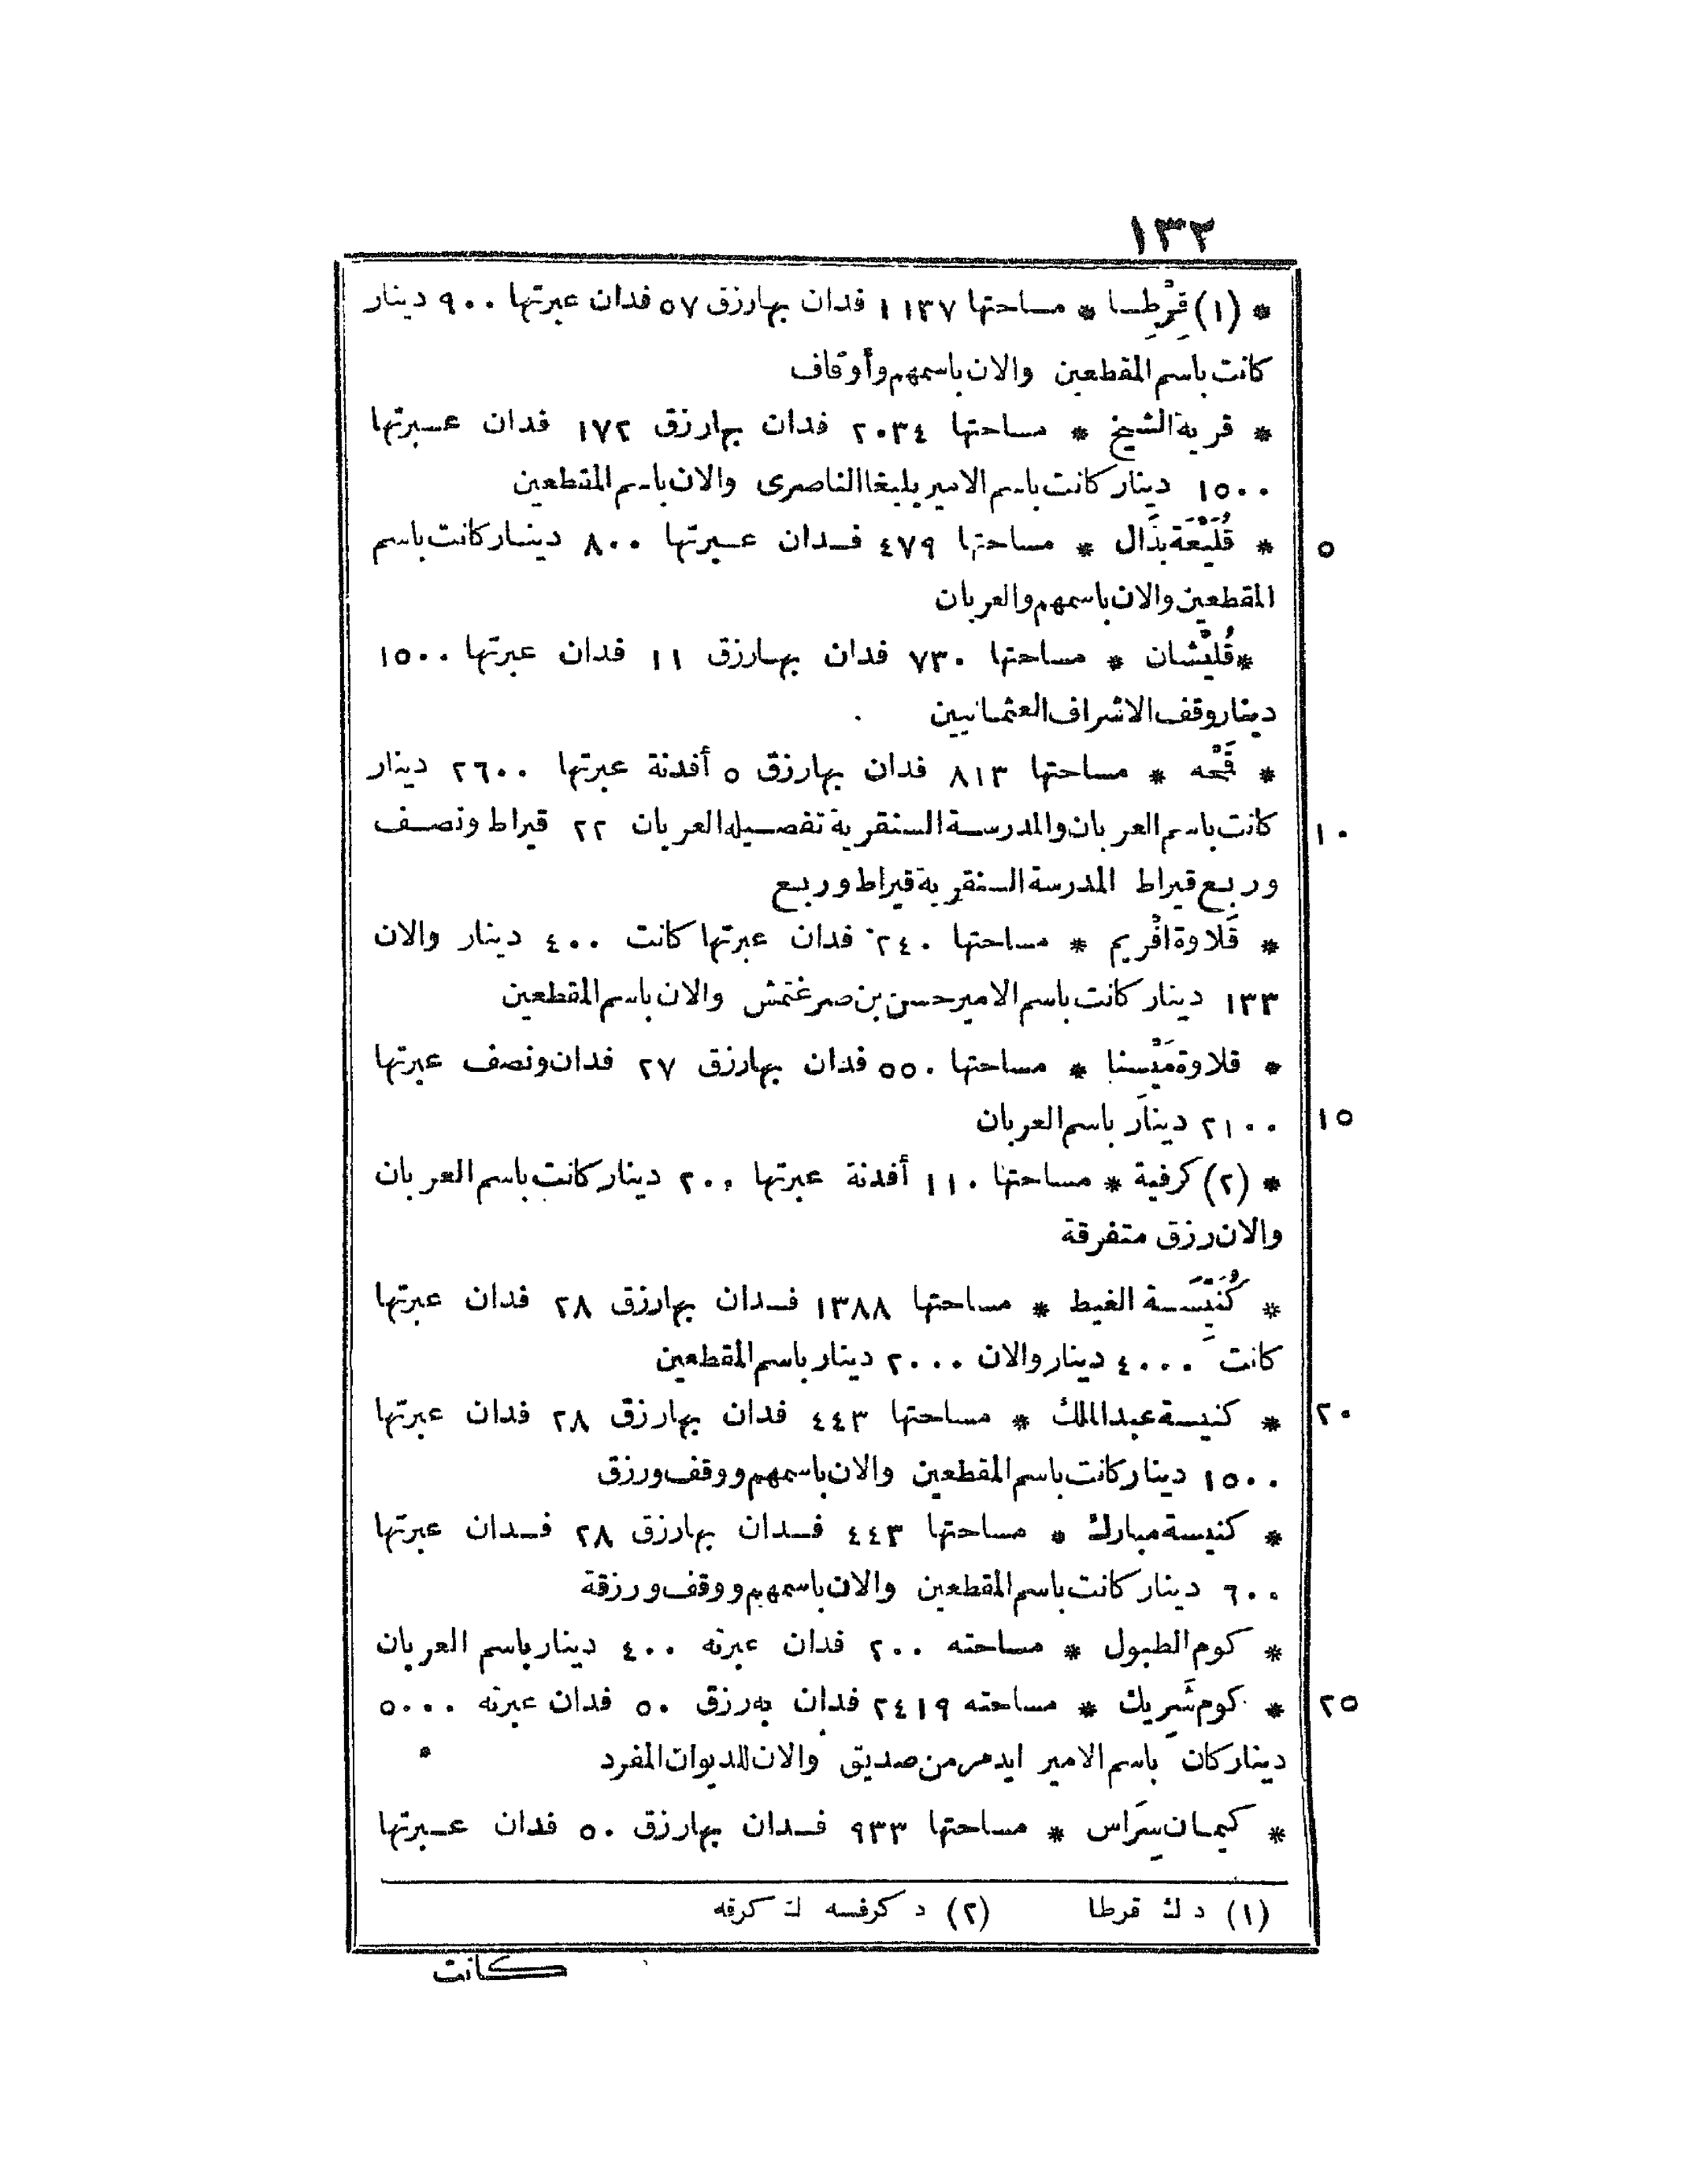 ١٣٢
* (١) قِرْطِسا * مساحتها ١١٣٧ فدان بها رزق ٥٧ فدان عبرتها ٩٠٠ دينار
كانت باسم المقطعين والان باسمهم وأوقاف
* قرية الشيخ * مساحتها ٢٠٣٤ فدان بها رزق ١٧٢ فدان عبرتها
١٥٠٠ دينار كانت باسم الامير يلبغا الناصرى والان باسم المقطعين
* قُلَيْعَة بَذَال * مساحتها ٤٧٩ فدان عبرتها ٨٠٠ دينار كانت باسم
٥
المقطعين والان باسمهم والعربان
* قُلَيْشان * مساحتها ٧٣٠ فدان بها رزق ١١ فدان عبرتها ١٥٠٠
دينار وقف الاشراف العثمانيين
* قَمْحه * مساحتها ٨١٣ فدان بها رزق ٥ أفدنة عبرتها ٢٦٠٠ دينار
كانت باسم العربان والمدرسة السنقرية تفصيله العربان ٢٢ قيراط ونصف
١٠
وربع قيراط المدرسة السنقرية قيراط وربع
* قَلاوة افْريم * مساحتها ٢٤٠ فدان عبرتها كانت ٤٠٠ دينار والان
١٣٣ دينار كانت باسم الامير حسن بن صرغتمش والان باسم المقطعين
* قلاوة مَيْسنا * مساحتها ٥٥٠ فدان بها رزق ٢٧ فدان ونصف عبرتها
٢١٠٠ دينار باسم العربان
١٥
* (٢) كرفية * مساحتها ١١٠ أفدنة عبرتها ٢٠٠ دينار كانت باسم العربان
والان رزق متفرقة
* كُنَيِّسَة الغيط * مساحتها ١٣٨٨ فدان بها رزق ٢٨ فدان عبرتها
كانت ٤٠٠٠ دينار والان ٢٠٠٠ دينار باسم المقطعين
* كنيسة عبد الملك * مساحتها ٤٤٣ فدان بها رزق ٢٨ فدان عبرتها
٢٠
١٥٠٠ دينار كانت باسم المقطعين والان باسمهم ووقف ورزق
* كنيسة مبارك * مساحتها ٤٤٣ فدان بها رزق ٢٨ فدان عبرتها
٦٠٠ دينار كانت باسم المقطعين والان باسمهم ووقف ورزقة
* كوم الطبول * مساحته ٢٠٠ فدان عبرته ٤٠٠ دينار باسم العربان
* كوم شَرِيك * مساحته ٢٤١٩ فدان به رزق ٥٠ فدان عبرته ٥٠٠٠
٢٥
دينار كان باسم الامير ايدمر من صديق والان للديوان المفرد
* كيمان سِرَاس * مساحتها ٩٣٣ فدان بها رزق ٥٠ فدان عبرتها
(١) د ك قرطا (٢) د كرفسه ك كرفه
كانت